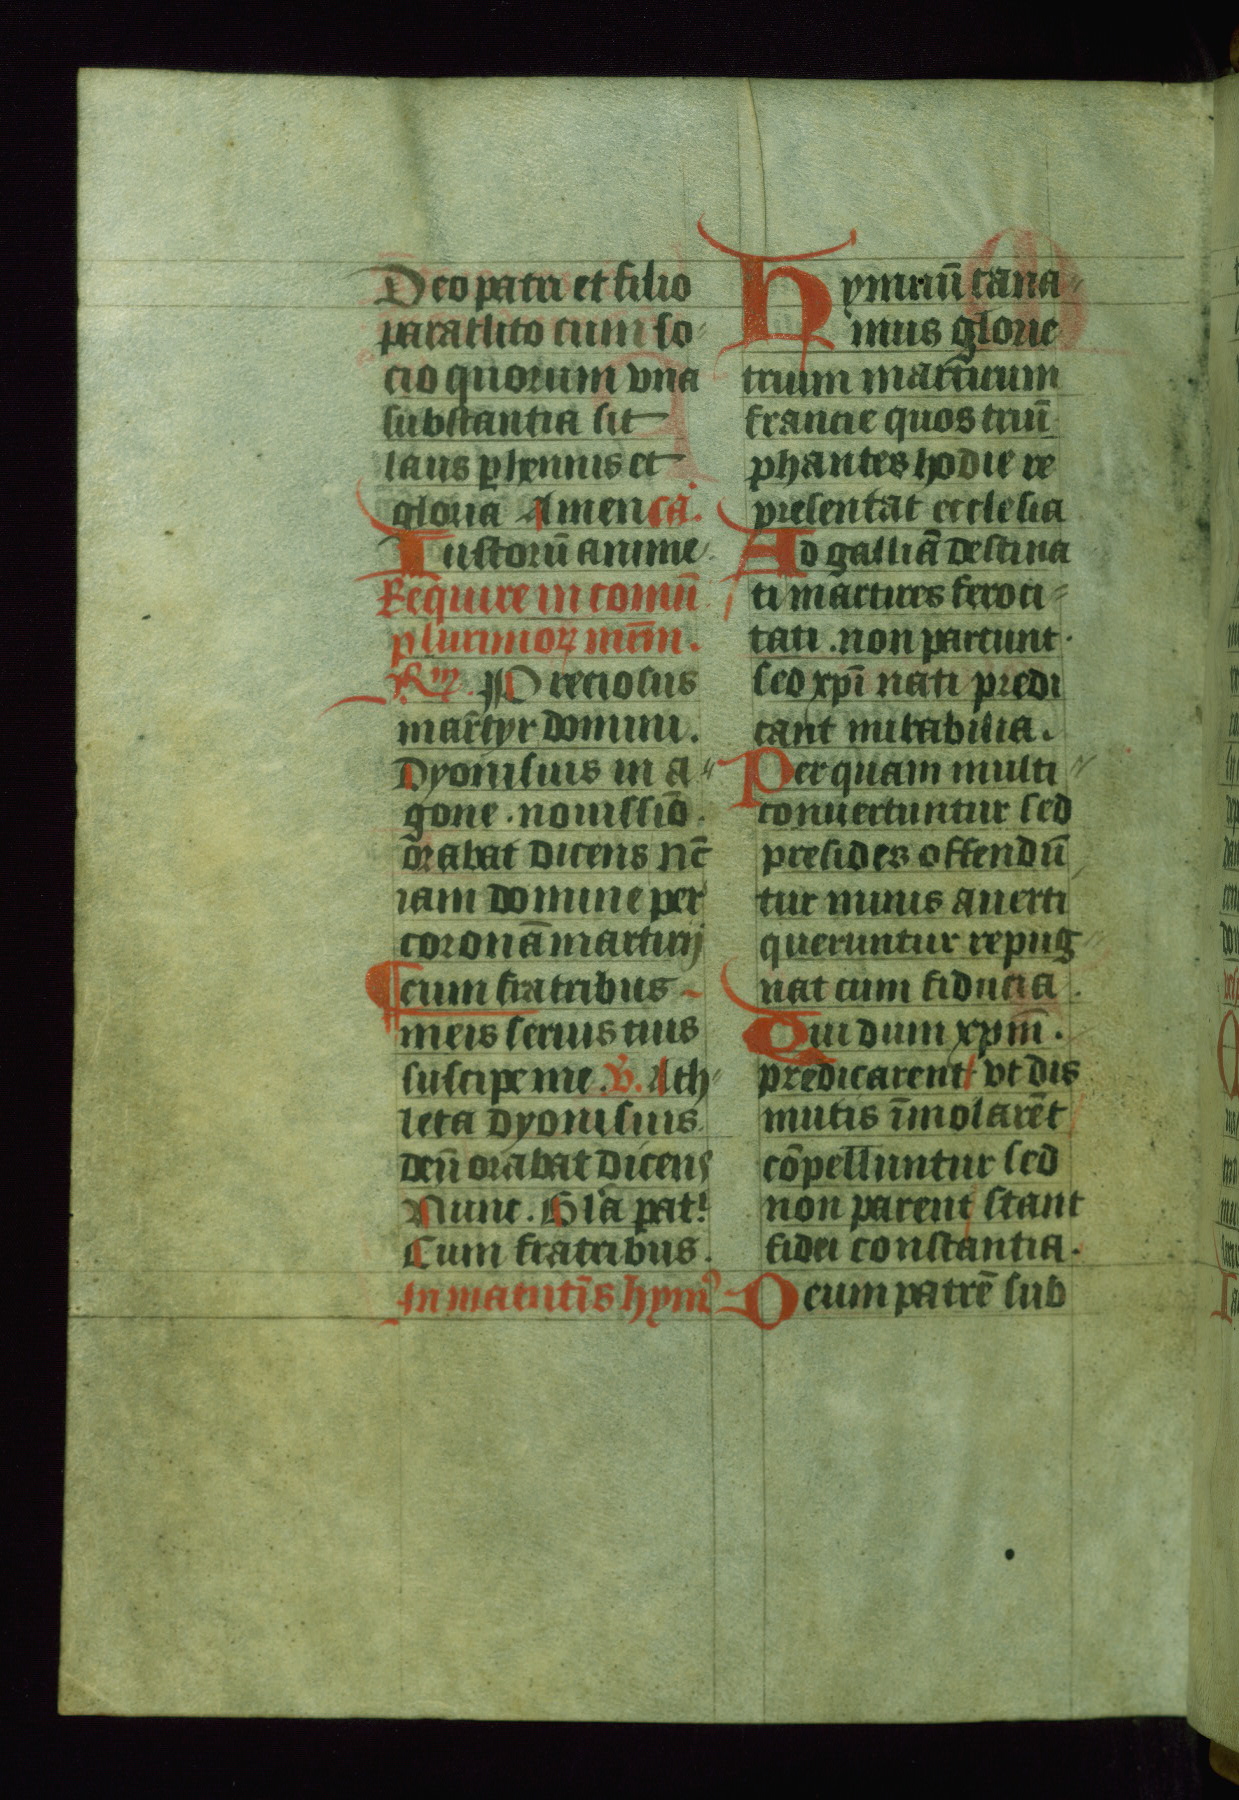 Deo patri et filio
paraclito cum so-
cio quorum vna
substantia sit
laus phennis et
gloria Amen ca.
Iustorū anime
Require in comūi
plurimoꝝ mr̄m.
Rm. Preciosus
martyr domini.
Dyonisius in a
gone. nouissīo
orabat dicens nc̄
iam domine per
coronā martirij
cum fratribus
meis seruis tuis
suscipe me. V. Ath-
leta dyonisius
deū orabat dicens
Nunc. Gla pat.
Cum fratribus.
In matutīs hym9
Hymnū cana-
mus glorie
trium martirum
francie quos triū
phantes hodie re
presentat ecclesia
Ad galliā destina
ti martires feroci-
tati. non parcunt.
sed xpī nati predi
cant mirabilia.
Per quam multi
conuertuntur sed
presides offendū
tur minis auerti
queruntur repug
nat cum fiducia.
Qui dum xpm̄.
predicarent vt dis
mutis īmolarēt
cōpelluntur sed
non parent stant
fidei constantia.
O cum patrē sub